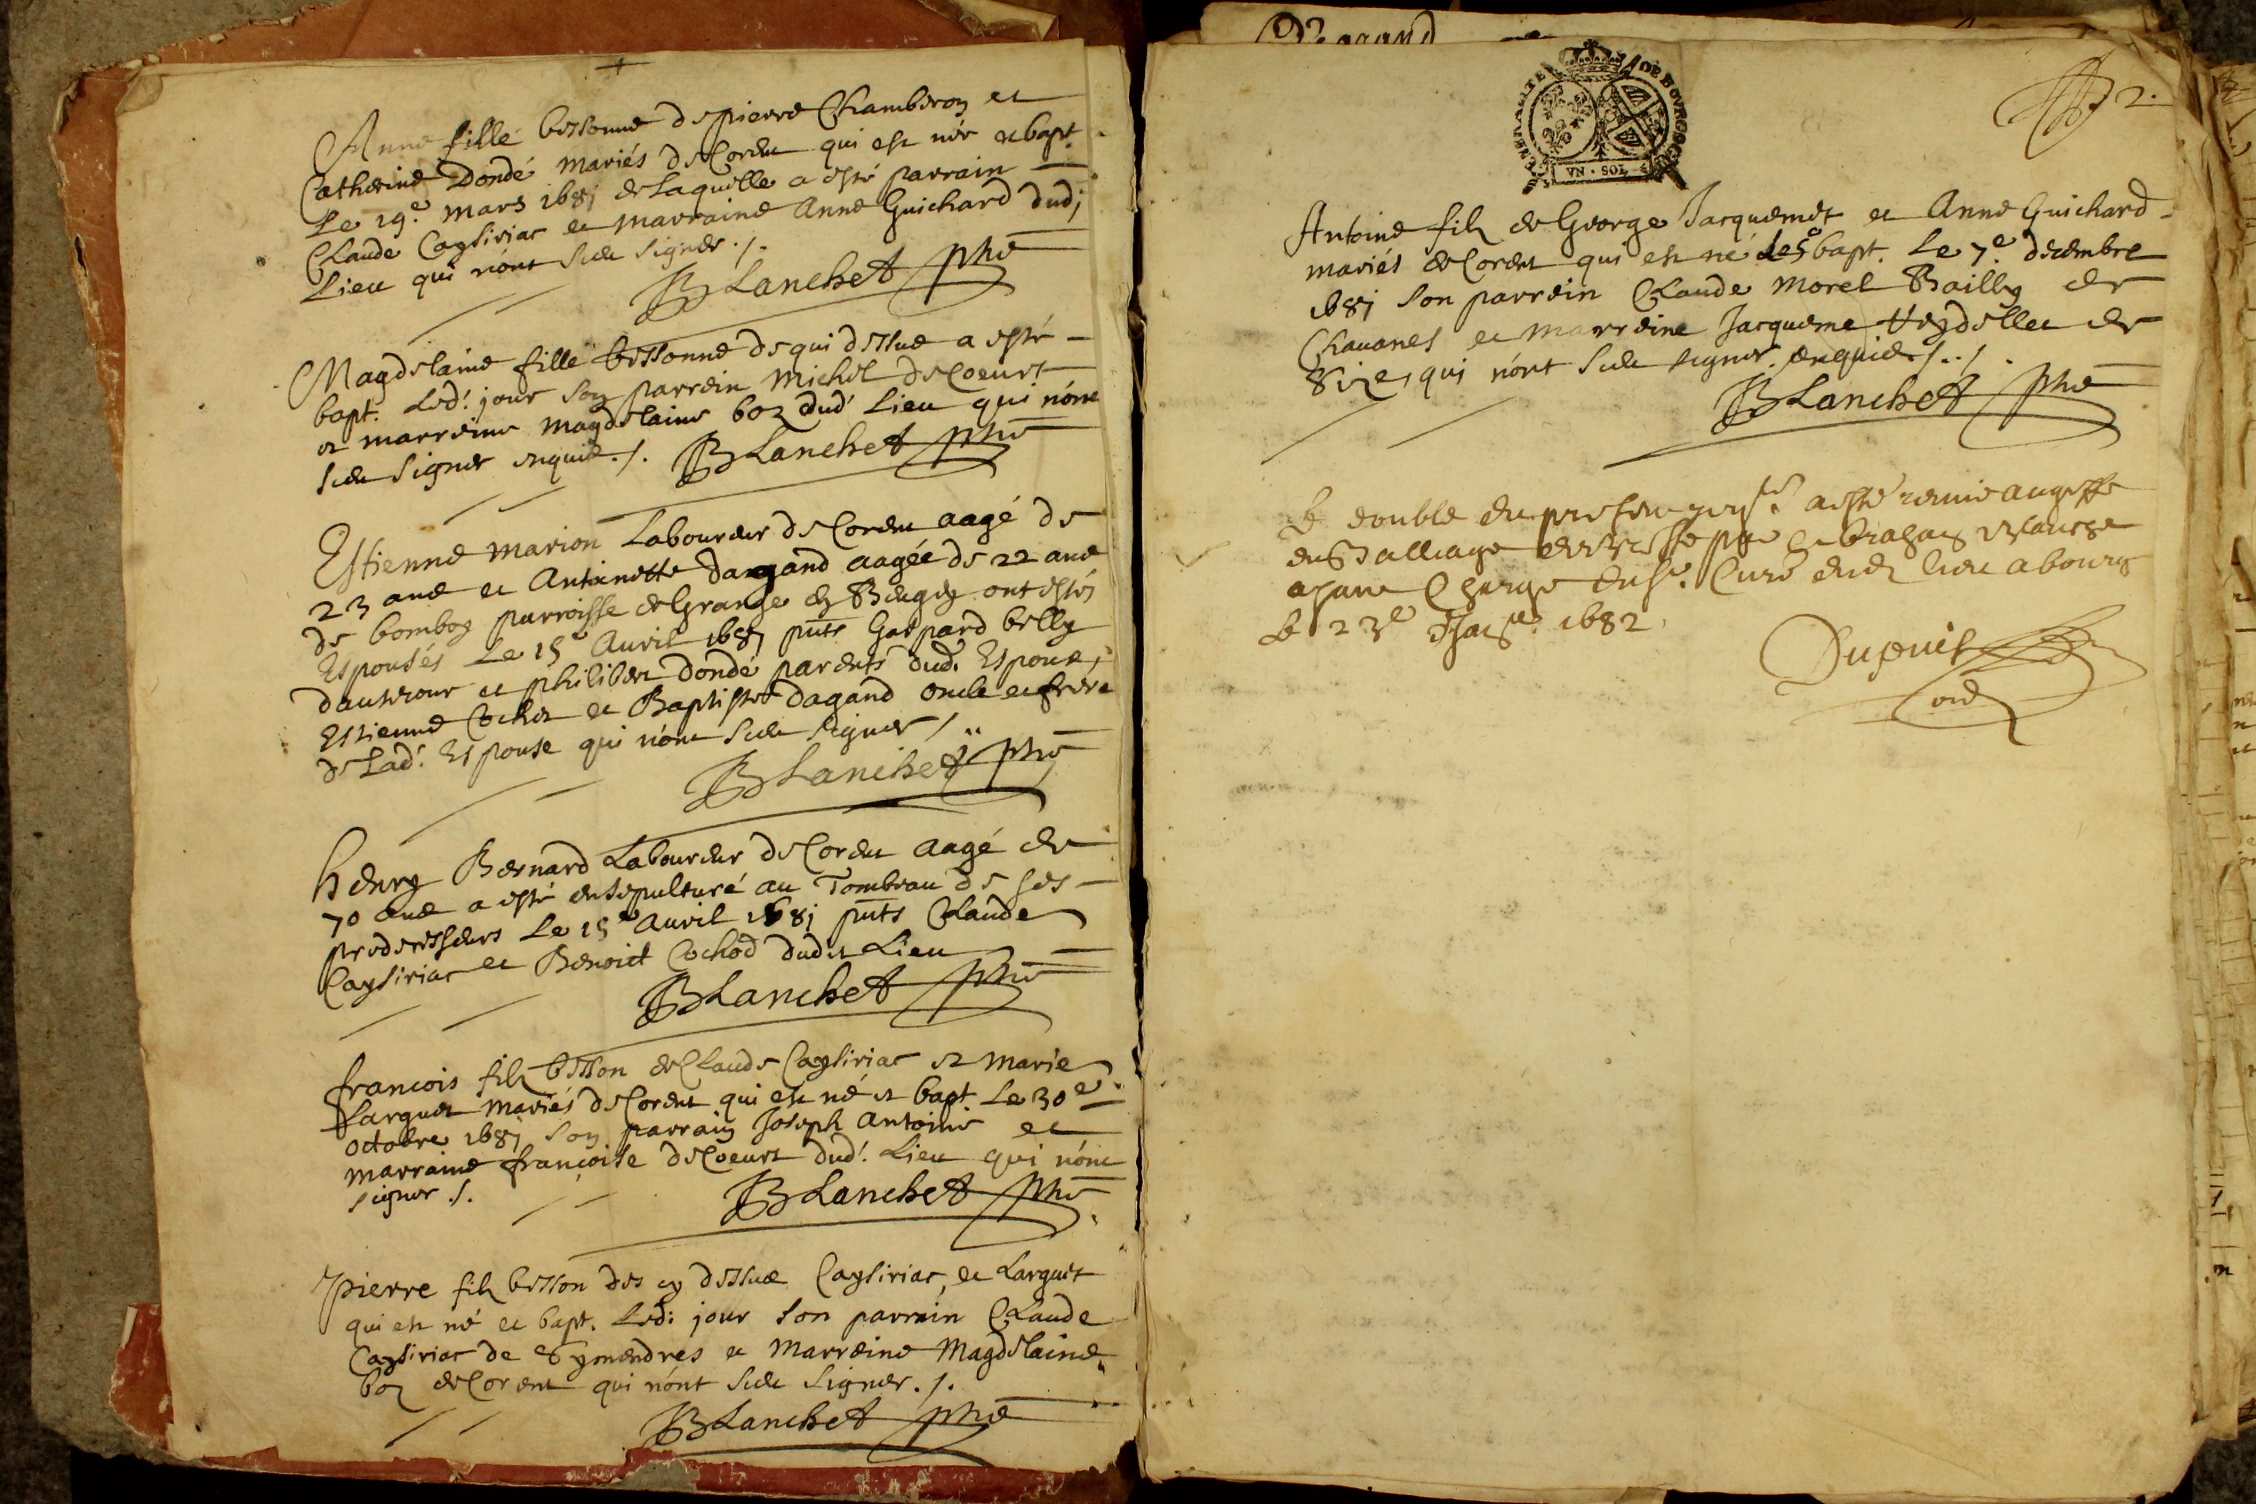 Anne fille bessonne de pierre Chamberon et
Catherine Dondé mariés de Corent qui est née et bapt.
Le 19e. mars 1681 de laquelle a esté parrain
Claude Caysiriac et marraine Anne Guichard dud.
Lieu qui n'ont sceu signer ./.
BLanchet pbre
Magdelaine fille bessonne de qui dessus a esté
bapt. Led. jour son parrein Michel de Coeurt
et marreine magdelaine boz dud. Lieu qui n'ont
sceu signer enquis ./. BLanchet pbre
Estienne Marion Laboureur de Corent aagé de
23 ans et Antoinette Dagand aagée de 22 ans
de bomboy parroisse de Grange en Beugey ont estés
Espousés Le 15e Avril 1681 pnts Gaspard belly
dauterour et philibert dondé parents dud. Espoux,
Estienne Cochet et Baptiste Dagand oncle et frere
de Lad. Espouse qui n'ont sceu signer /..
BLanchet pbre
Henry Bernard Laboureur de Corent aagé de
70 ans a esté ensepulturé au Tombeau de ses
predecesseurs Le 15e Avril 1681 pnts Claude
Caysiriac et Benoict Cochod dudit Lieu
BLanchet pbre
francois filz besson de Claude Caysiriac et Marie
Larguet mariés de Corent qui est né et bapt. Le 30e
octobre 1681 son parrain Joseph Antoine et
marraine françoise de Coeurt dud. Lieu qui n'ont
signer ./.
BLanchet pbre
Pierre filz besson des cy dessus Caysiriac, et Larguet
qui est né et bapt. Led. jour son parrein Claude
Caysiriac de Symendres et Marreine Magdelaine
boz de Corent qui n'ont sceu signer ./.
BLanchet pbre
GENERALITE DE BOVRGOGNE
VN · SOL
2.
Antoine filz de George Jacquemet et Anne Guichard
mariés de Corent qui est né le 5e bapt. Le 7e. decembre
1681 son parrein Claude Morel Bailly de
Chavanes et marreine Jacqueme Veydellet de
Size, qui n'ont sceu signer enquis /../.
BLanchet pbre
Le double du present a esté remis au greffe
du Balliage de Bresse par
ayant Charge du Sr. Curé dud. lieu a bourg
le 23e 1682.
Dupuis